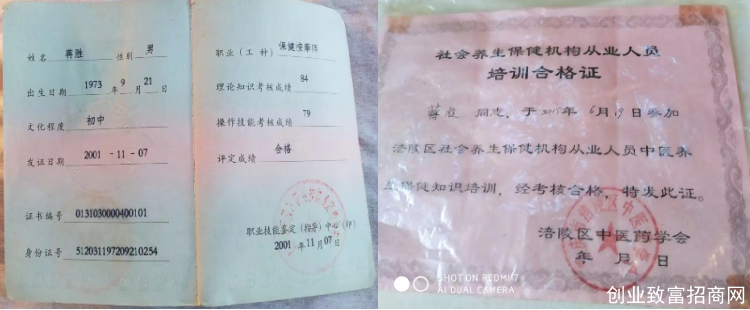 姓名 蒋胜 性别 男
出生日期 1973 年 9 月 21 日
文化程度 初中
发证日期 2001 - 11 - 07
证书编号 0131030000400101
身份证号 512031197209210254
职业（工种） 保健按摩师
理论知识考核成绩 84
操作技能考核成绩 79
评定成绩 合格
职业技能鉴定（指导）中心（印）
2001 年 11 月 07 日
社会养生保健机构从业人员
培训合格证
同志，于 2015年 6月19日参加
涪陵区社会养生保健机构从业人员中医养
生保健知识培训，经考核合格，特发此证。
涪陵区中医药学会
年 月 日
SHOT ON REDMI 7
AI DUAL CAMERA
创业致富招商网